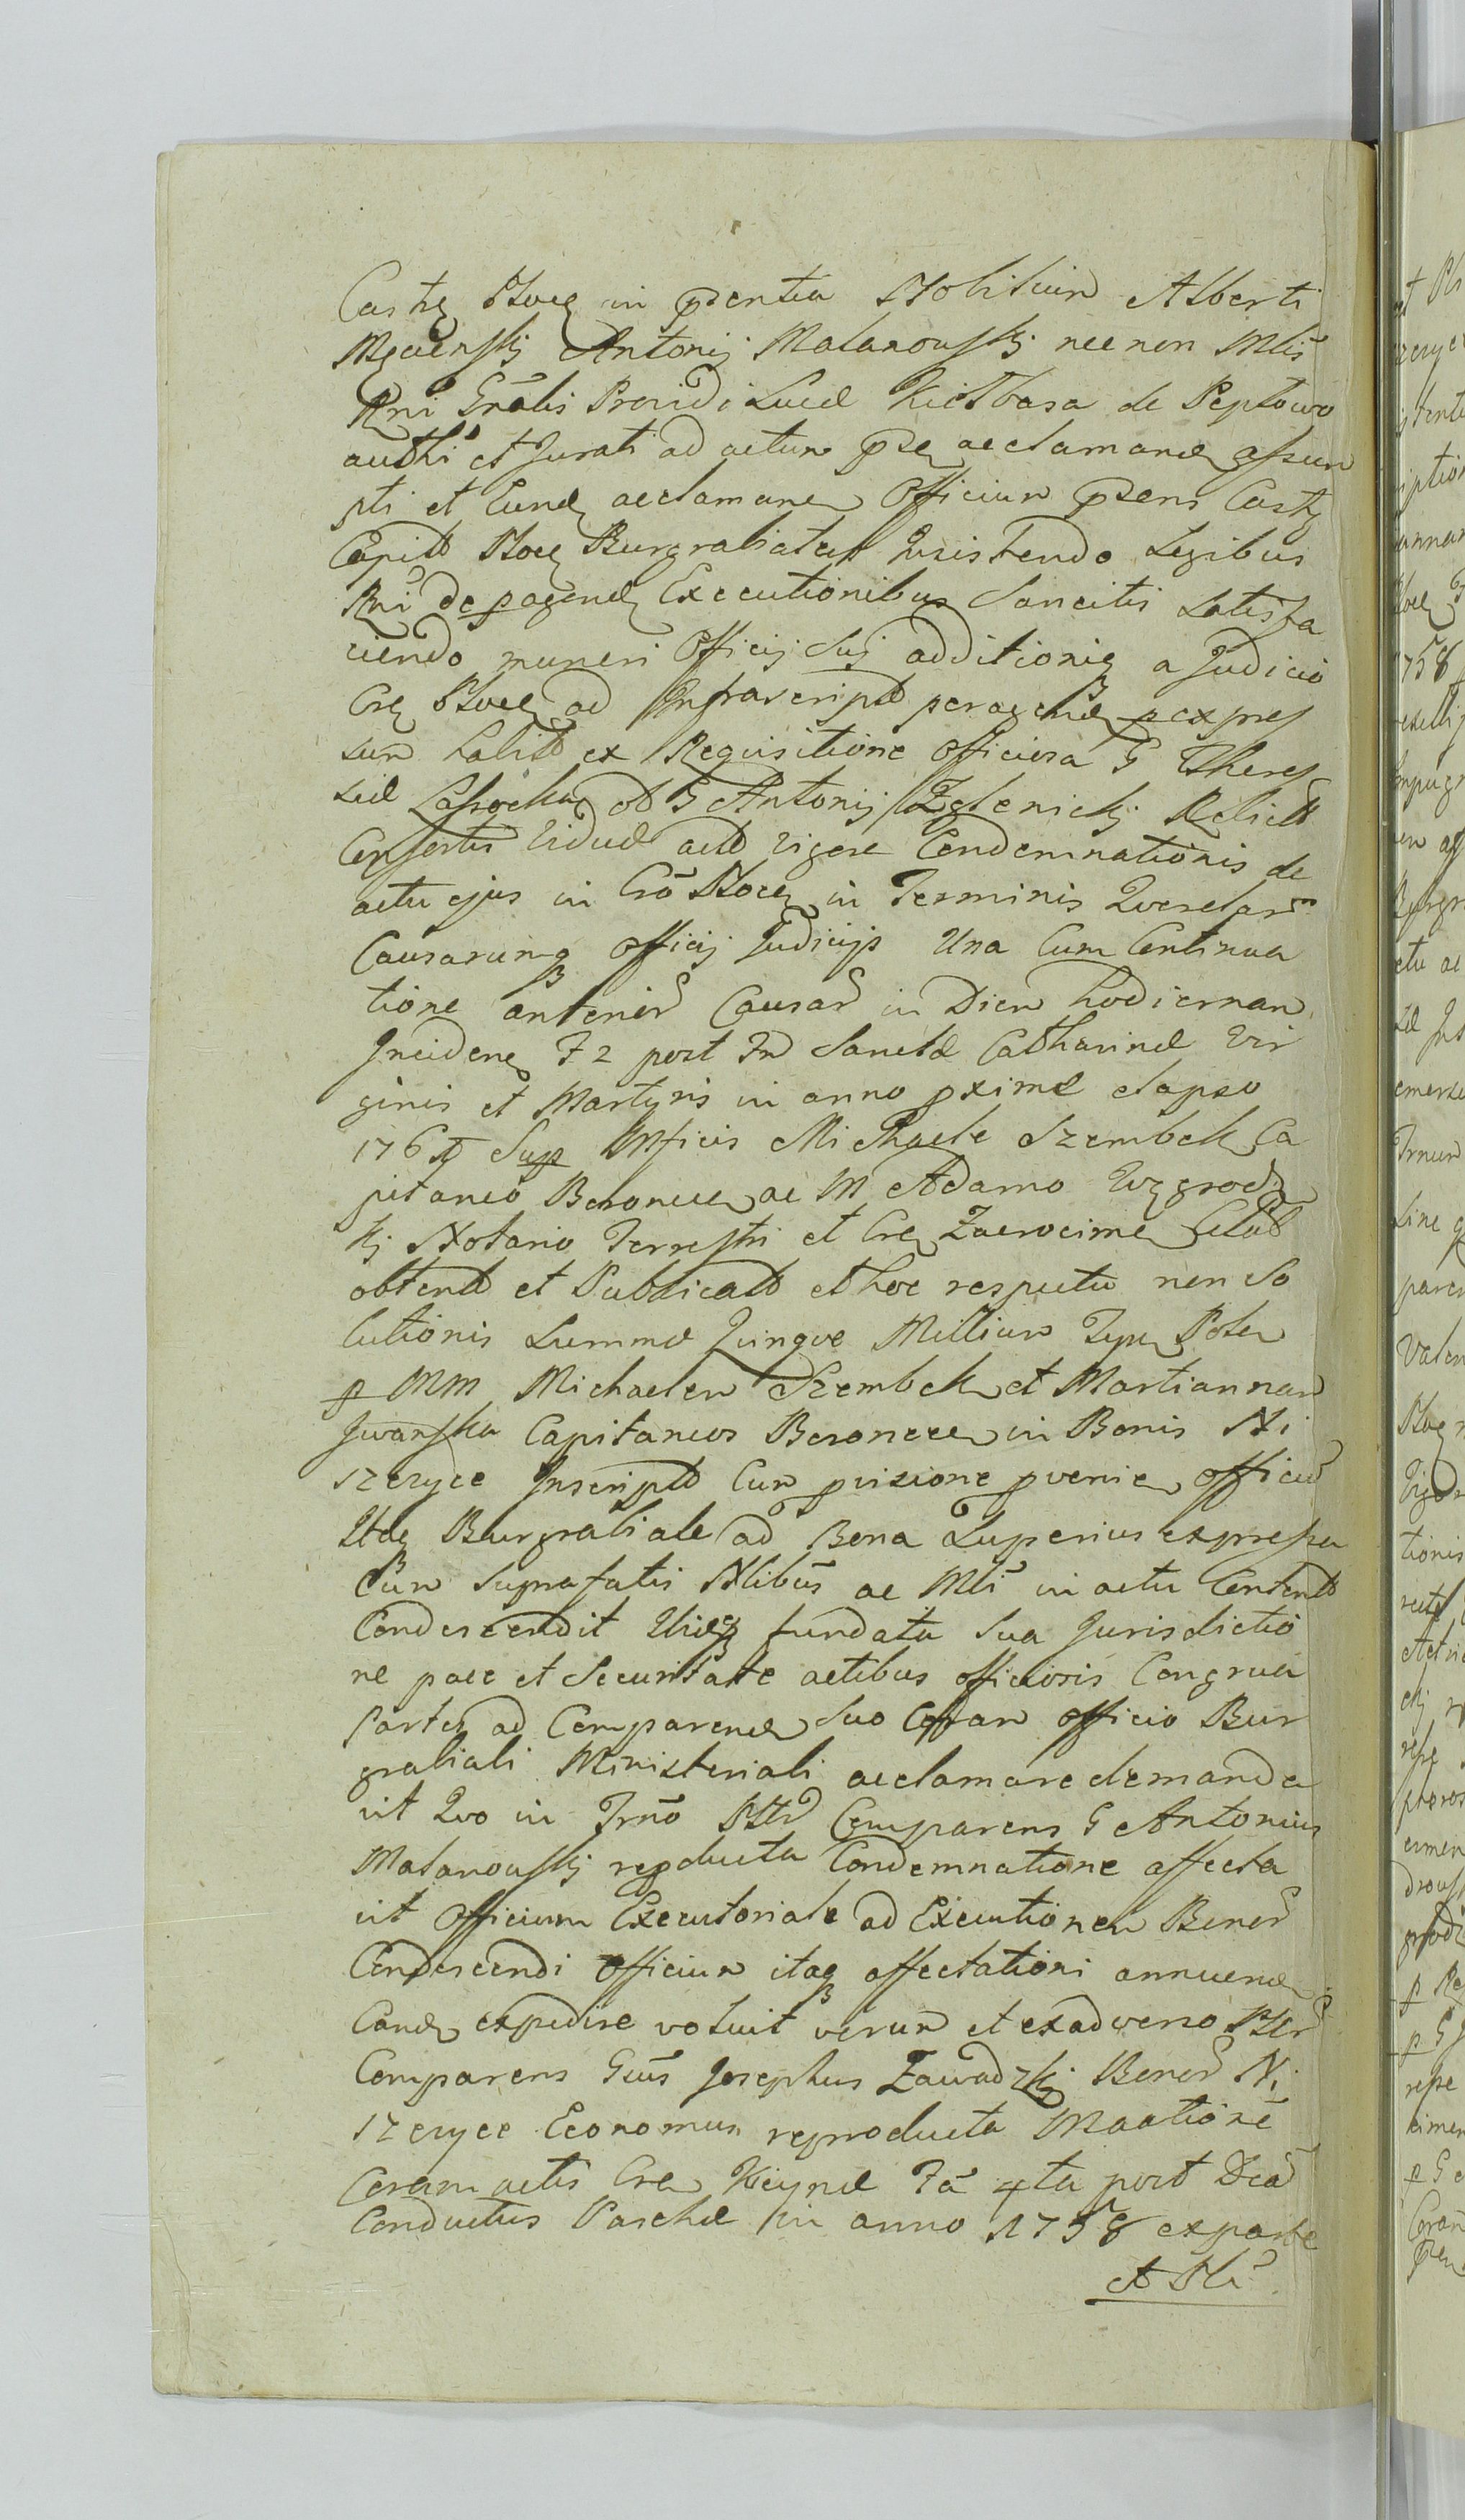 Castr Ploce in psentia Nobilium Alberti
Mgowskj Antonij Malanowskj nec non Mlis
Rni Gnâlis Providi Lucæ Kiełbasa de Peptowo
authi et Jurati ad actum pse acclamand assum
pti et Eund acclaman Officium psens Castr
Capitt Ploce Burgrabiatus Insistendo Legibus
Rni de pagend Executionibus Sancitis Satisfa
ciendo muneri Officij Sui additioniq a Judicio
Cre Ploce ad Infrascript peragend p expres
sum habitt ex Requisitione officiosa G There
siæ Lassocka ol G Antonij Zglenickj Relictt
Consortis Viduæ actt vigore Condemnationis de
actu ejus in Crô Ploce in Terminis Querelar
Causarumq officij Judicijs Una Cum Continua
tione anterior Causar in Diem hodiernam
Incidenq F 2 post Fm Sanctæ Catharinæ Vir
ginis et Martyris in anno pximæ elapso
Sup Mficis Michaele Szembek Ca
pitaneo ac M Adamo
kj Notario Terrestri et Cre Zacrocime
obtentt et Publicatt et hoc respectu non So
lutionis Summæ Quinque Millium Typu Polon
p MM Michaelem Szembek et Martiannam
Capitaneos in Bonis Ni
szczyce Inscriptt Cum pvisione pvenien officiu
Itaq Burgrabiale ad Bona Superius expressa
Cum Suprafatis Nlibus ac Mli in actu Contentt
Condescendit Ibidq fundata Sua Jurisdictio
ne pace et Securitate actibus officiosis Congrua
Partes ad Comparend Suo Coram officio Bur
grabiali Ministeriali acclamare demanda
vit Quo in Trno Plttr Comparens G Antonius
Malanowskj repducta Condemnatione affecta
vit Officium Executoriale ad Executionem Bonor
Condescendi Officium itaq affectationi annuend
Eand expedire voluit verum et ex adverso Plttr
Comparens Gnus Josephus Zawadzkj Bonor Ni
szczyce Economus reproducta
Coram actis Cre Kcynæ Fâ 4ta post Dcâ
Conductus Paschæ in anno 1758 ex parte